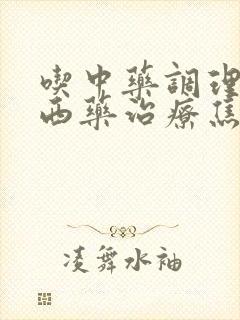 喫中藥調理
西藥治療焦
凌舞水袖